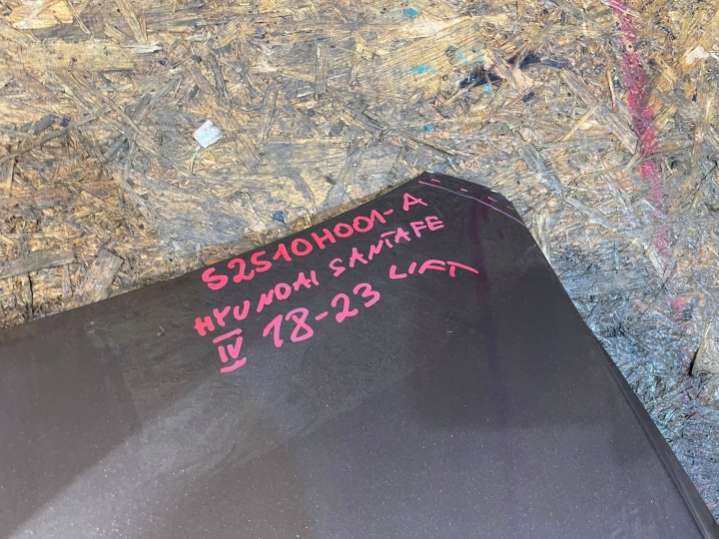 S2510H001-A
HYUNDAI SANTAFE
IV 18-23 LIFT